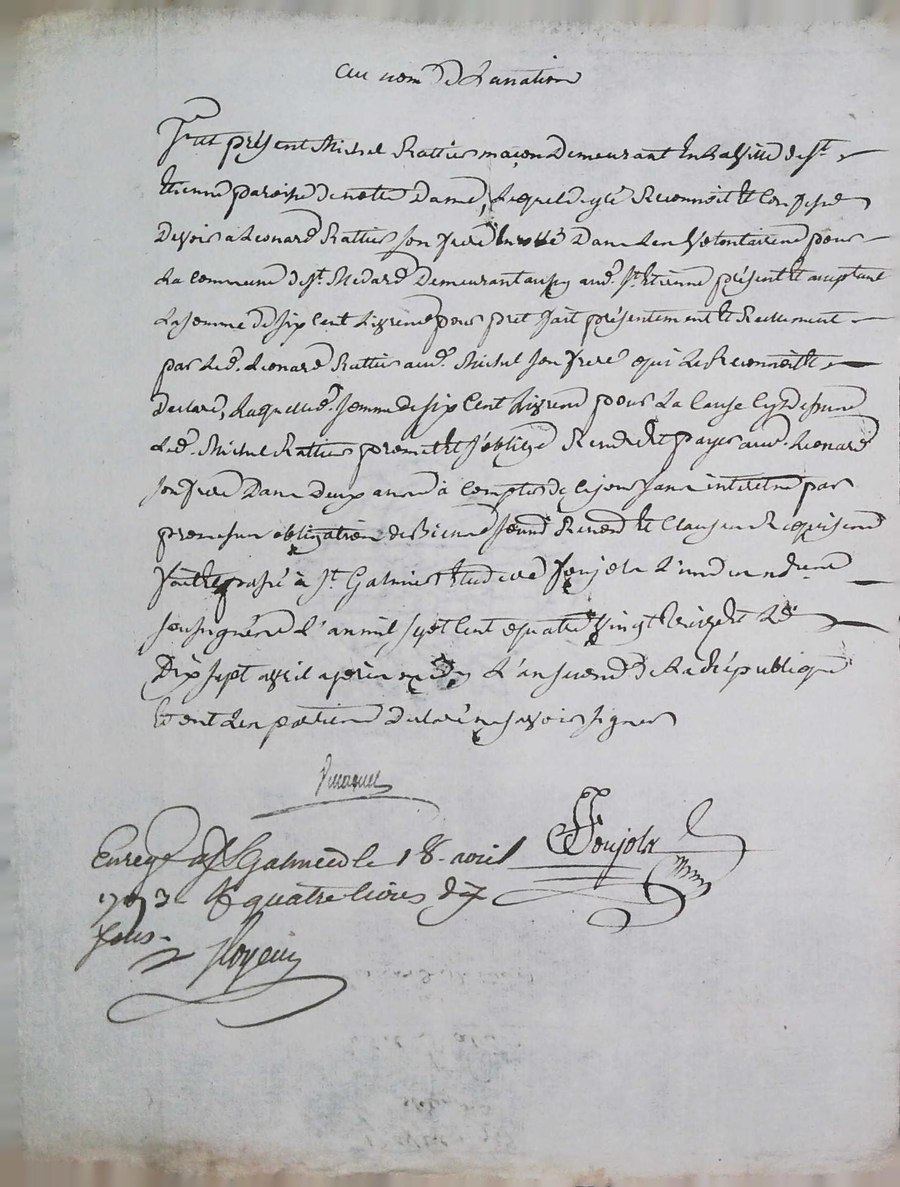 au nom de La nation
Fut présent Michel Rattier maçon Demeurant En La ville de St
Etienne paroisse de notre Dame, Lequel de gré Reconnoit Et Confesse
Devoir a Leonard Rattier Son frere Dans Les Volontaires pour
La Commune de St. Medard Demeurant aud. St. Etienne présent Et acceptant
La Somme de Six Cent Livres pour pret fait présentement Et Reellement
par Led. Leonard Rattier aud. Michel Son frere qui Le Reconnoit Et
Declare, Laquelle d. Somme de Six Cent Livres pour La Cause Cy Dessus
Led. Michel Rattier promet Et S'oblige Rendre Et payer aud. Leonard
Son frere Dans Deux années à Compter de Ce jour Sans interets par
promesse obligation de Biens Soumis Renon. Et Clauses Requises
fait Et passé à St. Galmier Etude de Soujols L'un des nd.res
Soussignés L'an mil Sept Cent quatre Vingt treize Et Le
Dix Sept avril après midy L'an Second de La République
Et ont Les parties Declaré ne Savoir Signer
Soujols
Enreg. a St Galmier le 18 avril
1793 R quatre livres 7
sols